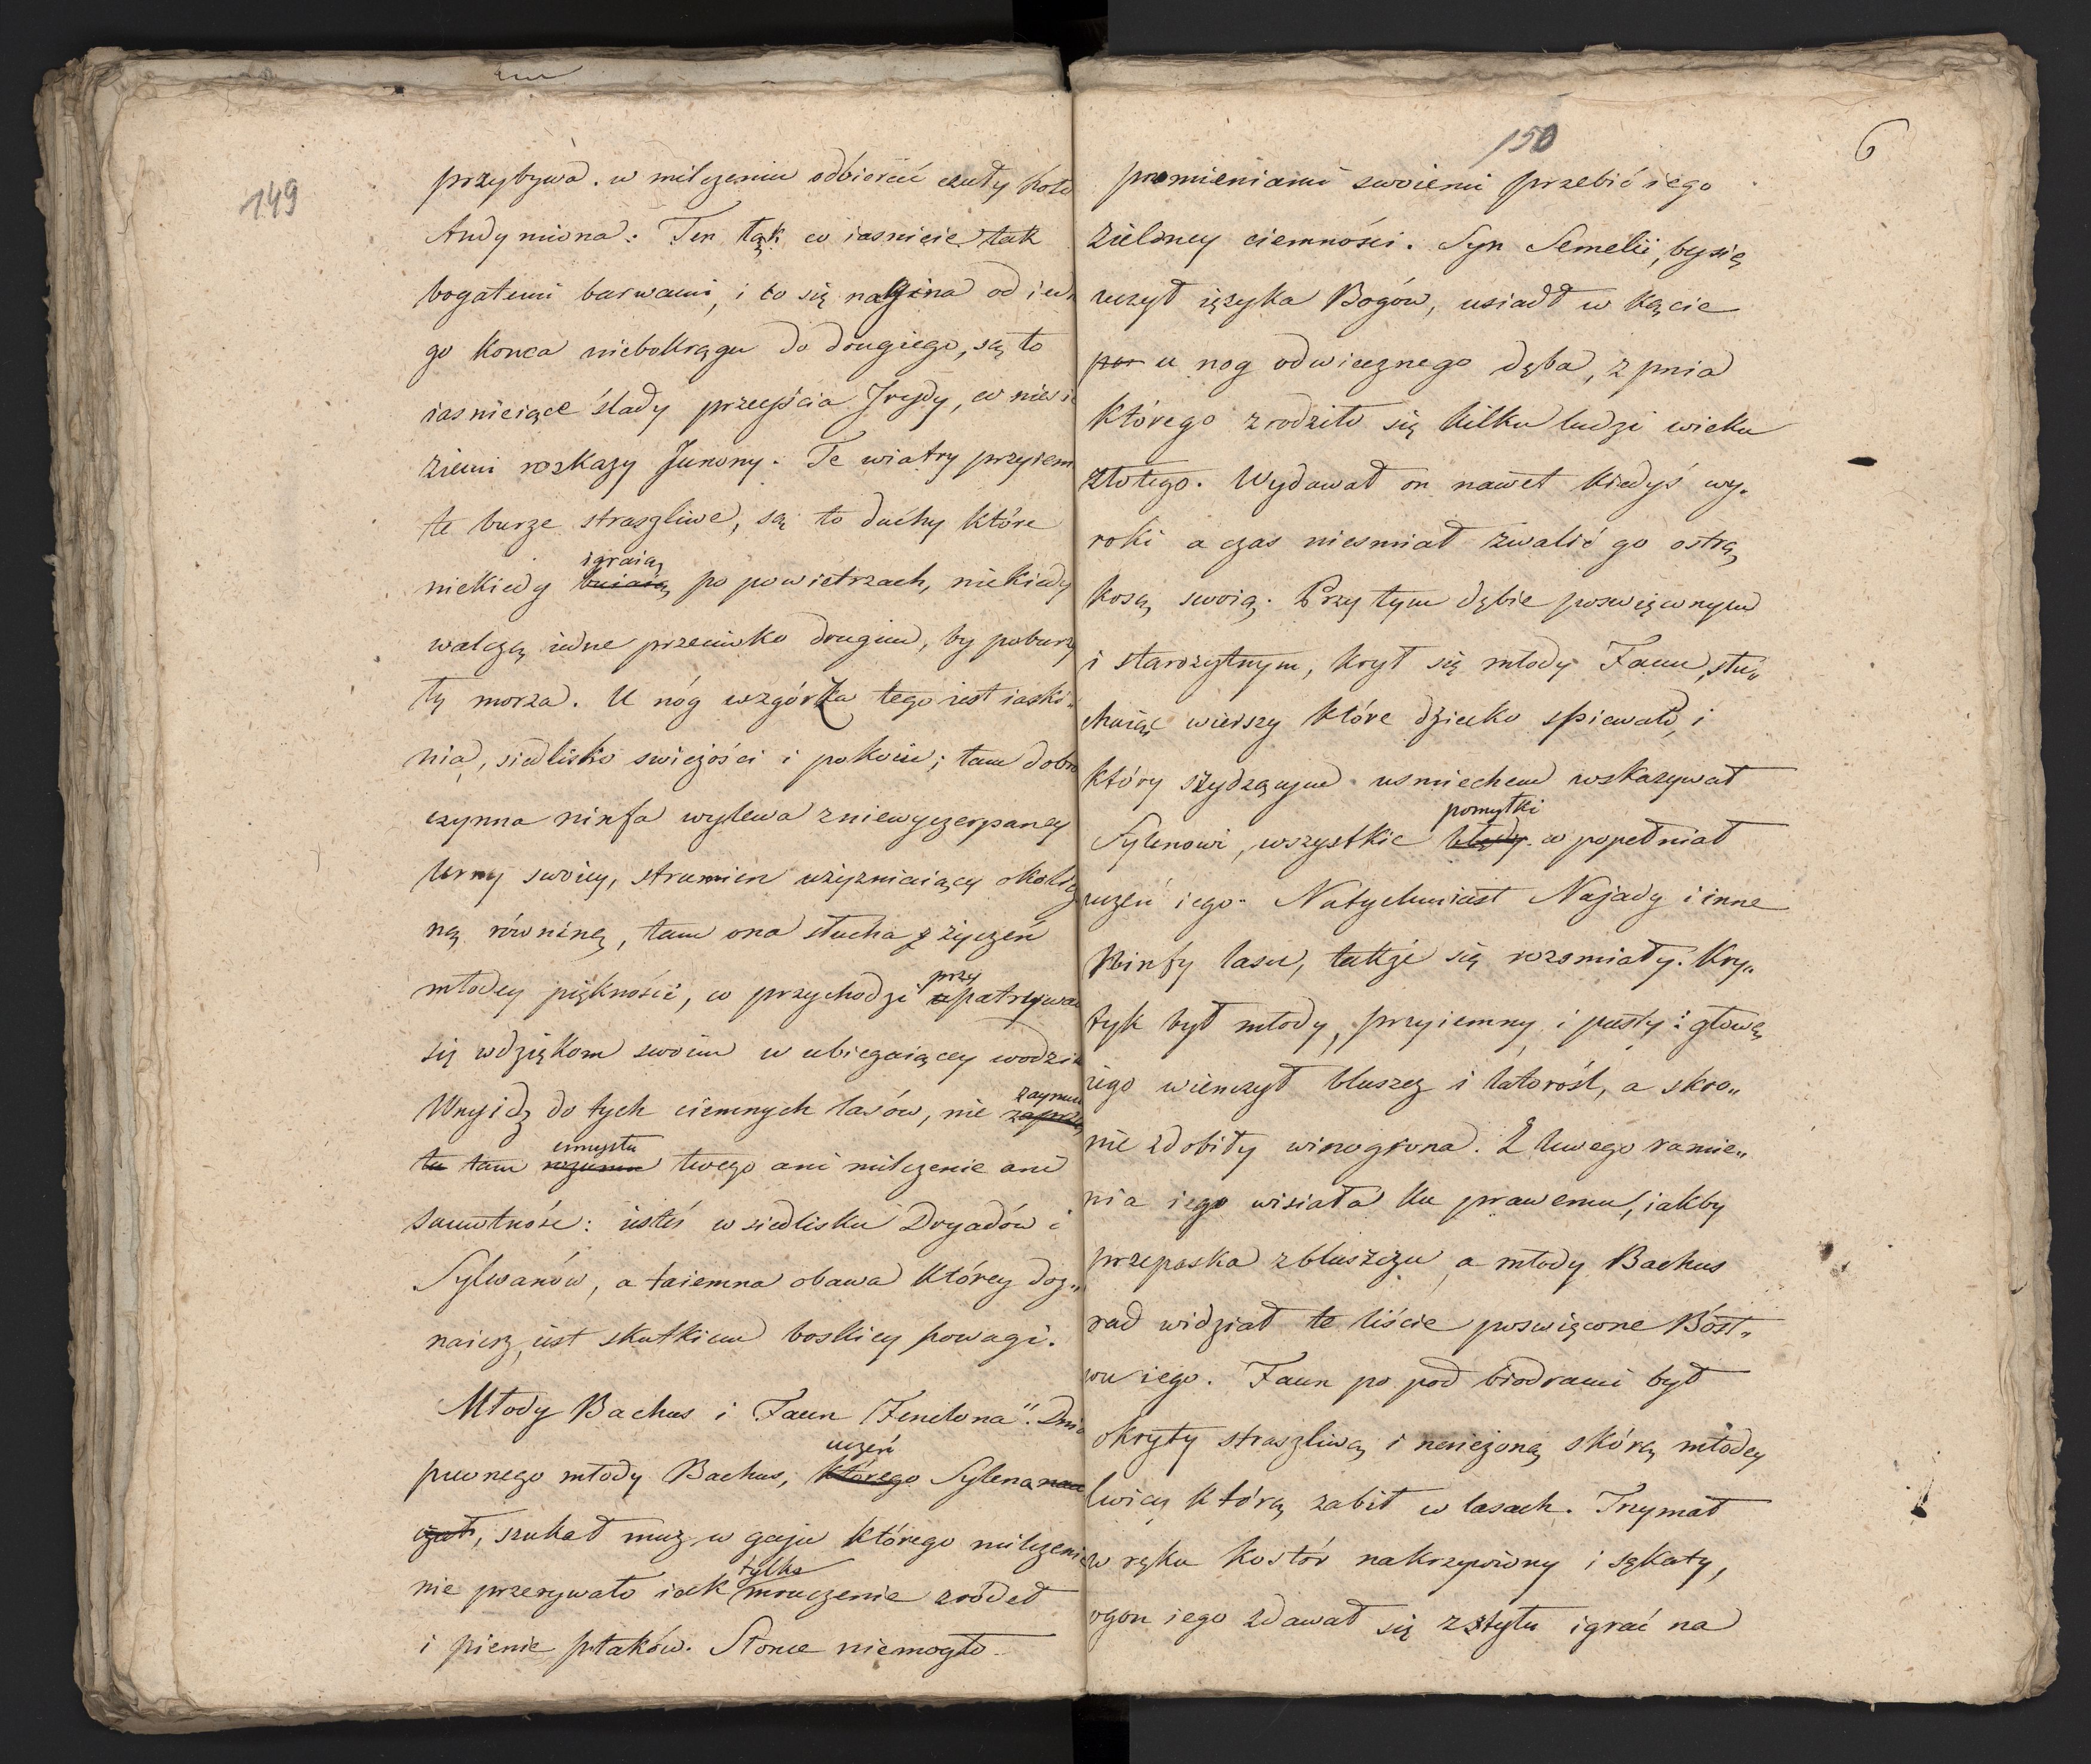 149
przybywa. w milczeniu odbierać czuły hołd
Andymiona: Ten łęk co iasnieie tak
bogatemi barwami, i co się nagina od iedn
go konca niebokręgu do drugiego, są to
iasnieiące ślady przeyścia Irydy, co niesie
ziemi rozkazy Junony. Te wiatry przyiem
te burze straszliwe, są to duchy które
igraią
niekiedy buiaią po powietrzach, niekiedy
walczą iedne przeciwko drugim, by poburzy
ły morza. U nóg wzgórka tego iest iaski„
nia, siedlisko swieżości i pokoiu; tam dobro
czynna ninfa wylewa z niewyczerpaney
Urny swoiey, strumien użyzniaiący okolicz
ną równinę, tam ona słucha z życzeń
przy
młodey piękności, co przychodzi upatrywać
się wdziękom swoim w ubiegaiącey wodzie
zaymu
Wnyidz do tych ciemnych lasów, nie zaprzą
umysłu
tu tam rozumu twego ani milczenie ani
samotność: iesteś w siedlisku Dryadów i
Sylwanów, a taiemna obawa którey doz„
naiesz, iest skutkiem boskiey powagi.
Młody Bachus i Faun "Fenelona". Dnia
uczeń
pewnego młody Bachus, którego Sylena nau
czał, szukał muz w gaju którego milczenie
tylko
nie przerywało iak mruczenie zródeł
i pienie ptaków. Słonce niemogło
150
6
promieniami swoiemi przebić iego
zieloney ciemności. Syn Semelii, by się
uczył ięzyka Bogów, usiadł w kącie
por u nog odwiecznego dęba, z pnia
którego zrodziło się kilku ludzi wieku
złotego. Wydawał on nawet kiedyś wy„
roki a czas niesmiał zwalić go ostrą
kosą swoią. Przy tym dębie poswięconym
i starożytnym, krył się młody Faun, słu„
chaiąc wierszy które dziecko spiewało, i
który szydzącym usmiechem wskazywał
pomyłki
Sylenowi, wszystkie błędy co popełniał
uczeń iego. Natychmiast Najady i inne
Ninfy lasu, także się rozsmiały. Kry„
tyk był młody, przyiemny i pusty: głowę
iego wienczył bluszcz i latorośl, a skro„
nie zdobiły winogrona. Z lewego ramie„
nia iego wisiała ku prawemu, iakby
przepaska z bluszczu a młody Bachus
rad widział te liście poswięcone Bóst„
wu iego. Faun po pod biodrami był
okryty straszliwą i nasieżoną skórą młodey
lwicy którą zabił w lasach. Trzymał
w ręku kostór nakrzywiony i sękaty,
ogon iego zdawał się z tyłu igrać na